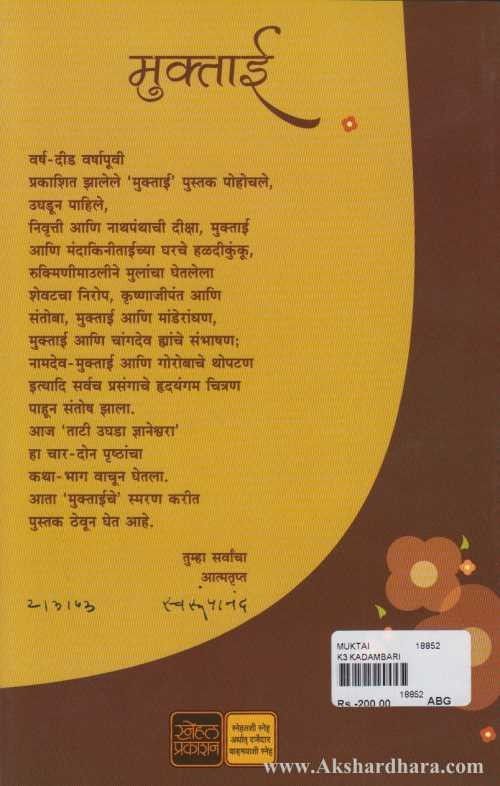 मुक्ताई
वर्ष-दीड वर्षापूर्वी
प्रकाशित झालेले 'मुक्ताई' पुस्तक पोहोचले,
उघडून पाहिले,
निवृत्ती आणि नाथपंथाची दीक्षा, मुक्ताई
आणि मंदाकिनीताईच्या घरचे हळदीकुंकू,
रुक्मिणीमाउलीने मुलांचा घेतलेला
शेवटचा निरोप, कृष्णाजीपंत आणि
संतोबा, मुक्ताई आणि मांडेरांधण,
मुक्ताई आणि चांगदेव ह्यांचे संभाषण;
नामदेव-मुक्ताई आणि गोरोबाचे थोपटण
इत्यादि सर्वच प्रसंगाचे हृदयंगम चित्रण
पाहून संतोष झाला.
आज 'ताटी उघडा ज्ञानेश्वरा'
हा चार-दोन पृष्ठांचा
कथा-भाग वाचून घेतला.
आता 'मुक्ताईचे' स्मरण करीत
पुस्तक ठेवून घेत आहे.
तुम्हा सर्वांचा
आत्मतृप्त
स्वरूपानंद
MUKTAI 18852
K3 KADAMBARI
18852
Rs.-200.00 ABG
स्नेहल
प्रकाशन
स्नेहलशी स्नेह
अर्थात् दर्जेदार
वाङ्मयाशी स्नेह
www.Akshardhara.com